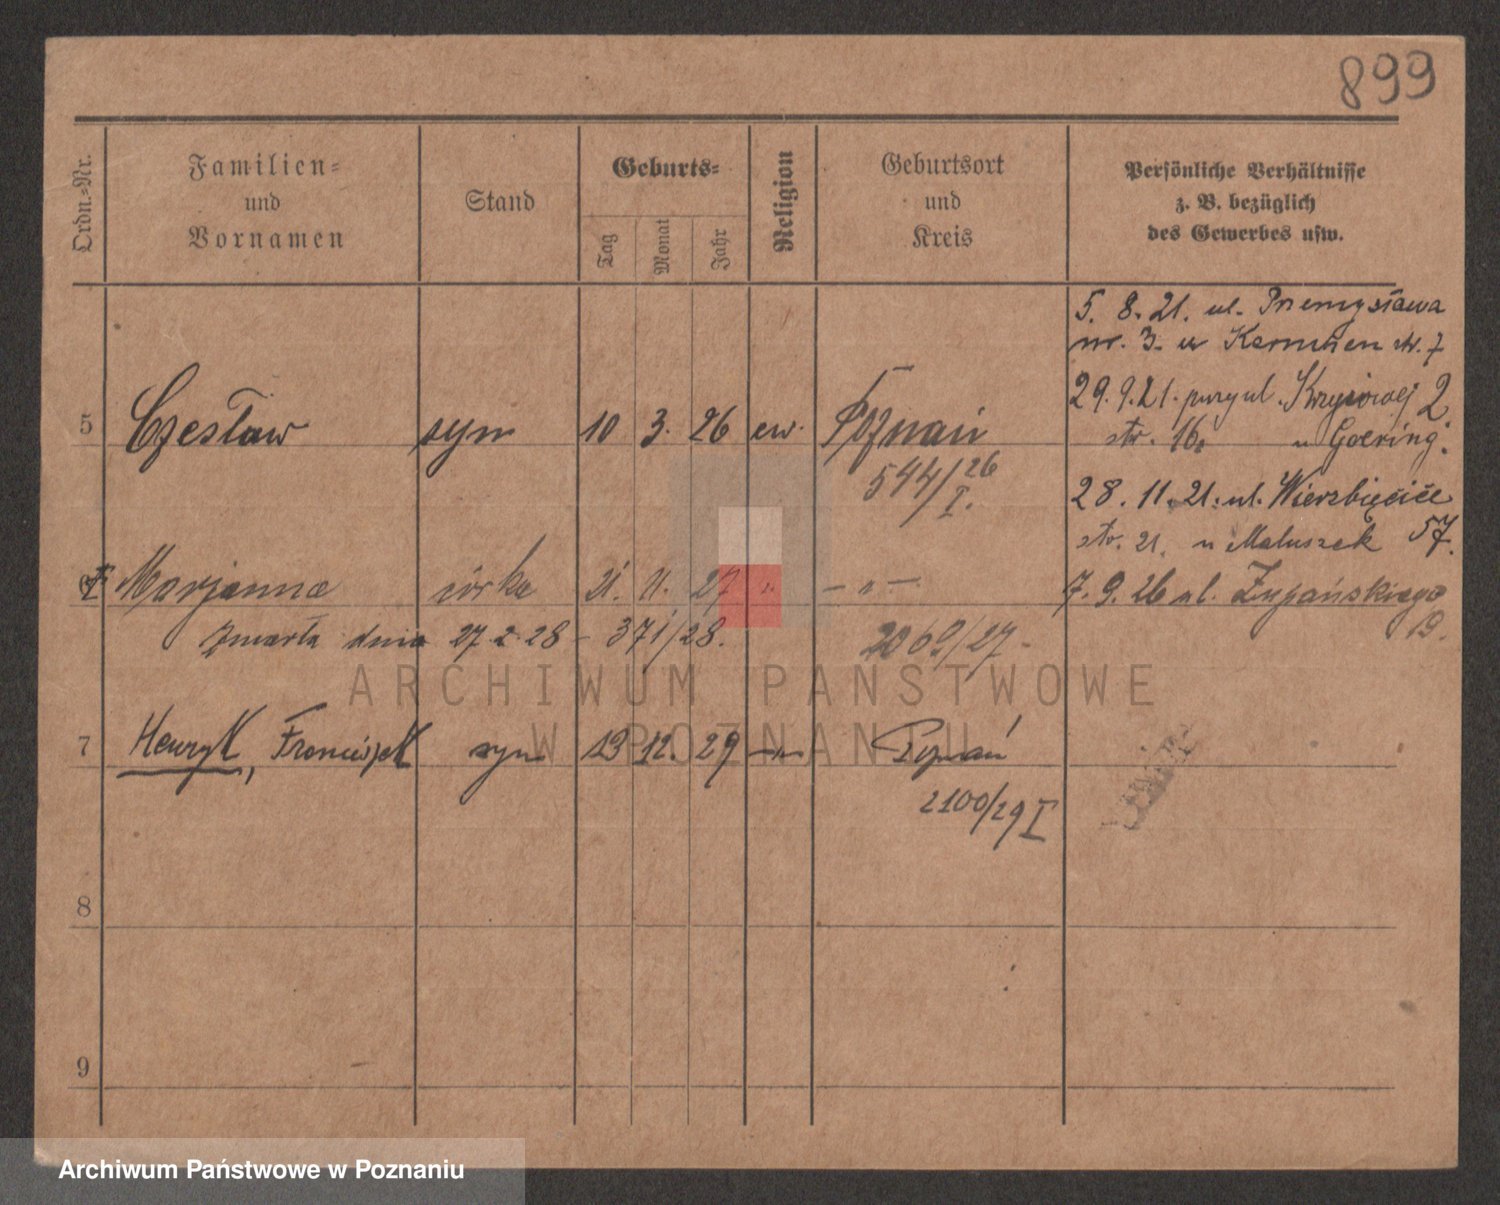 899
Ordn.-Nr.
Familien-
und
Vornamen
Stand
Geburts-
Tag
Monat
Jahr
Religion
Geburtsort
und
Kreis
Persönliche Verhältnisse
z. B. bezüglich
des Gewerbes usw.
5. 8. 21. ul. Przemysława
nr. 3. u
29. 9. 21. ul.
str. 16. u Goering.
5 Czesław syn 10 3. 26 ew. Poznań
544/26
I.
28. 11. 21. ul. Wierzbięcice
str. 21. u Maluszek 57.
6 Marjanna córka 21. 11. 27 " - " -
7. 9. 26 ul. Żupańskiego
19.
zmarła dnia 27. 2. 28 - 371/28.
2069/27 -
ARCHIWUM PAŃSTWOWE
W POZNANIU
7 Henryk, Franciszek syn 13 12. 29 - " - Poznań
2100/29 I
8
9
Archiwum Państwowe w Poznaniu